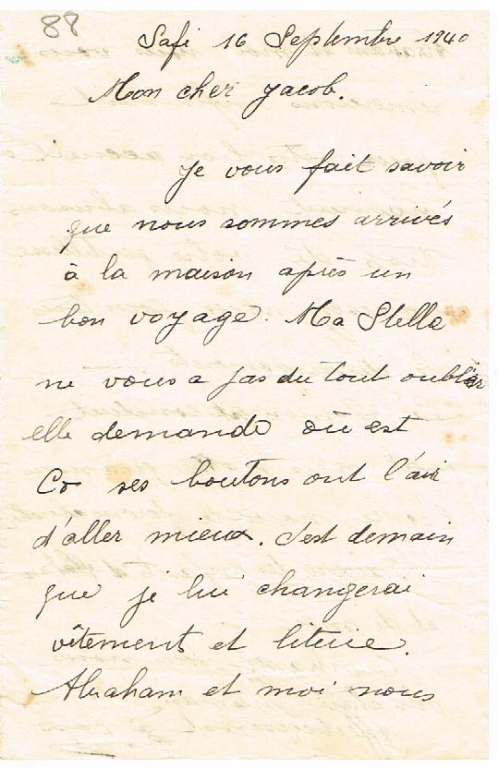 88
Safi 16 Septembre 1940
Mon cher Jacob.
Je vous fait savoir
que nous sommes arrivés
à la maison après un
bon voyage. Ma Stella
ne vous a pas du tout oublier
elle demande où est
Co ses boutons ont l'air
d'aller mieux. c'est demain
que je lui changerai
vêtement et literie.
Abraham et moi nous